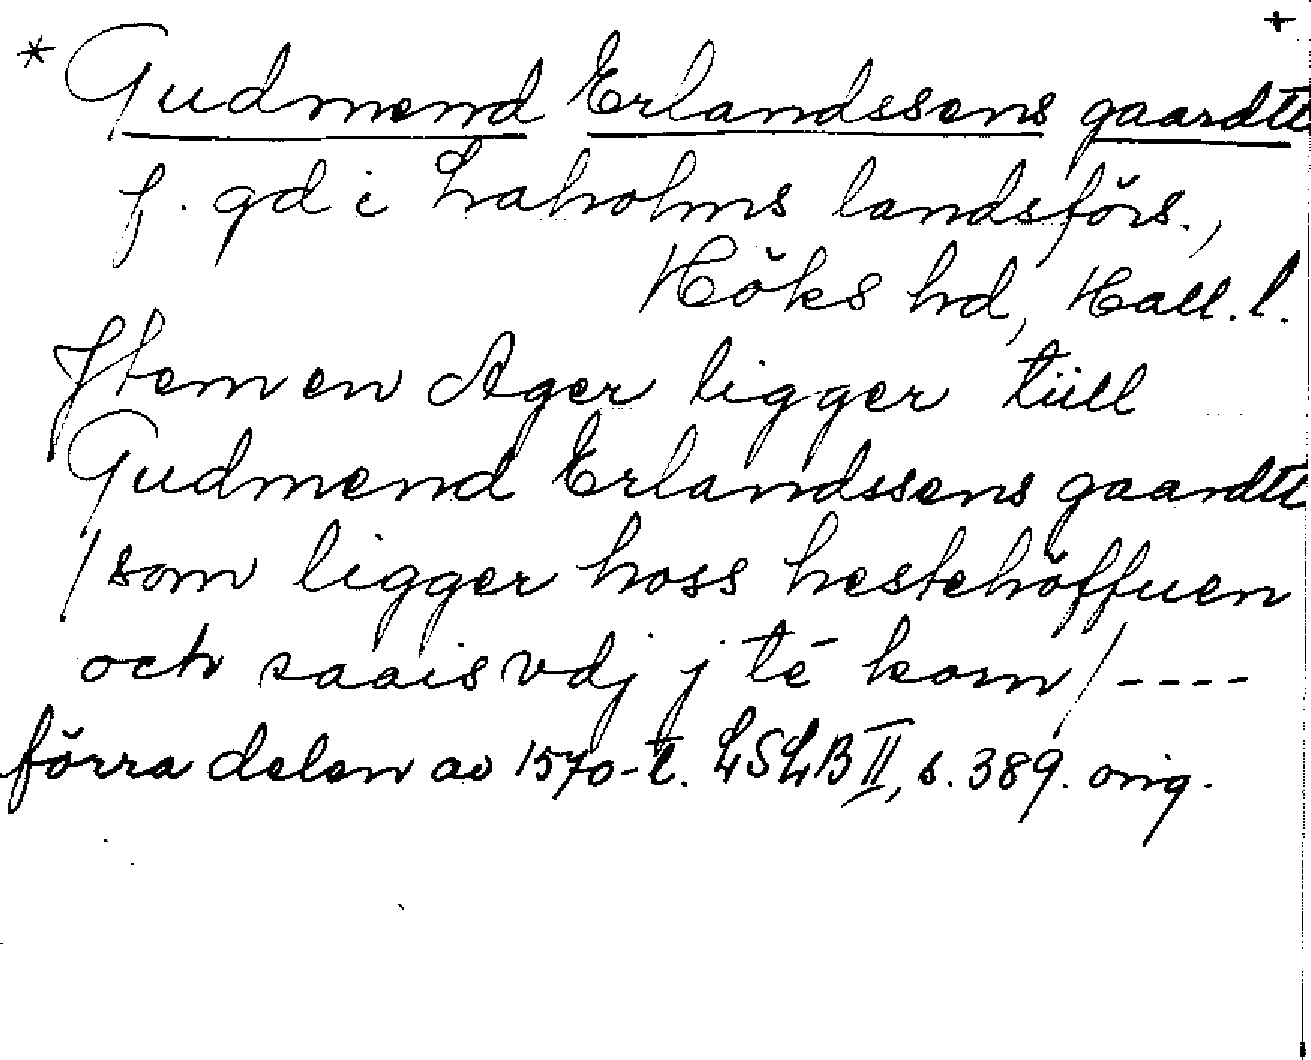 * Gudmend Erlandssens gaardtt +
f. gd i Laholms landsförs.,
Höks hd, Hall. l.
Jtem en Ager ligger tiill
Gudmend Erlandssens gaardtt
/som ligger hoss hestehöffuen
och saais vdj j tē korn/----
förra delen av 1570-t. LSLB II, s. 389. orig.